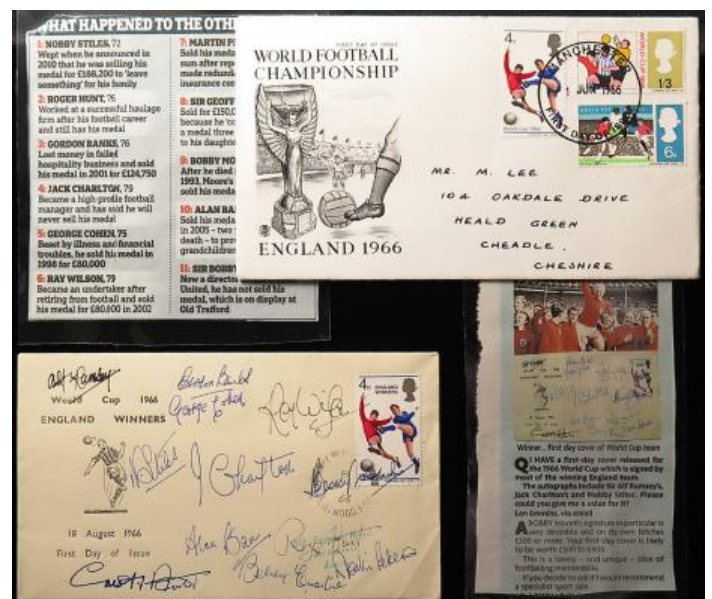 WHAT HAPPENED TO THE OTH
1: NOBBY STILES, 72
Wept when he announced in
2010 that he was selling his
medal for £188,200 to 'leave
something' for his family
2: ROGER HUNT, 76
Worked at a successful haulage
firm after his football career
and still has his medal
3: GORDON BANKS, 76
Lost money in failed
hospitality business and sold
his medal in 2001 for £124,750
4: JACK CHARLTON, 79
Became a high-profile football
manager and has said he will
never sell his medal
5: GEORGE COHEN, 75
Beset by illness and financial
troubles, he sold his medal in
1998 for £80,000
6: RAY WILSON, 79
Became an undertaker after
retiring from football and sold
his medal for £80,000 in 2002
7: MARTIN P
Sold his med
sum after rep
made redund
insurance co
8: SIR GEOFF
Sold for £150,0
because he 'co
a medal three
to his daughte
9: BOBBY MO
After he died
1993, Moore's
sold his meda
10: ALAN BA
Sold his meda
in 2005 - two
death - to prov
grandchildren
11: SIR BOBBY
Now a director
United, he has not sold his
medal, which is on display at
Old Trafford
FIRST DAY OF ISSUE
WORLD FOOTBALL
CHAMPIONSHIP
ENGLAND 1966
4D
WORLD CUP 1966
1'3
6D
MANCHESTER
1 JUN 1966
MR. M. LEE
104 OAKDALE DRIVE
HEALD GREEN
CHEADLE,
CHESHIRE
World Cup 1966
ENGLAND WINNERS
18 August 1966
First Day of Issue
4D
ENGLAND
WINNERS
Gordon Banks
George Cohen
Ray Wilson
N Stiles
J Charlton
Winner... first day cover of World Cup team
Q I HAVE a first-day cover released for
the 1966 World Cup which is signed by
most of the winning England team.
The autographs include Sir Alf Ramsey's,
Jack Charlton's and Nobby Stiles'. Please
could you give me a value for it?
Len Emmins, via email
A BOBBY Moore's signature in particular is
very desirable and on its own fetches
£300 or more. Your first-day cover is likely
to be worth £500 to £600.
This is a lovely - and unique - slice of
footballing memorabilia.
If you decide to sell it I would recommend
a specialist sport sale.